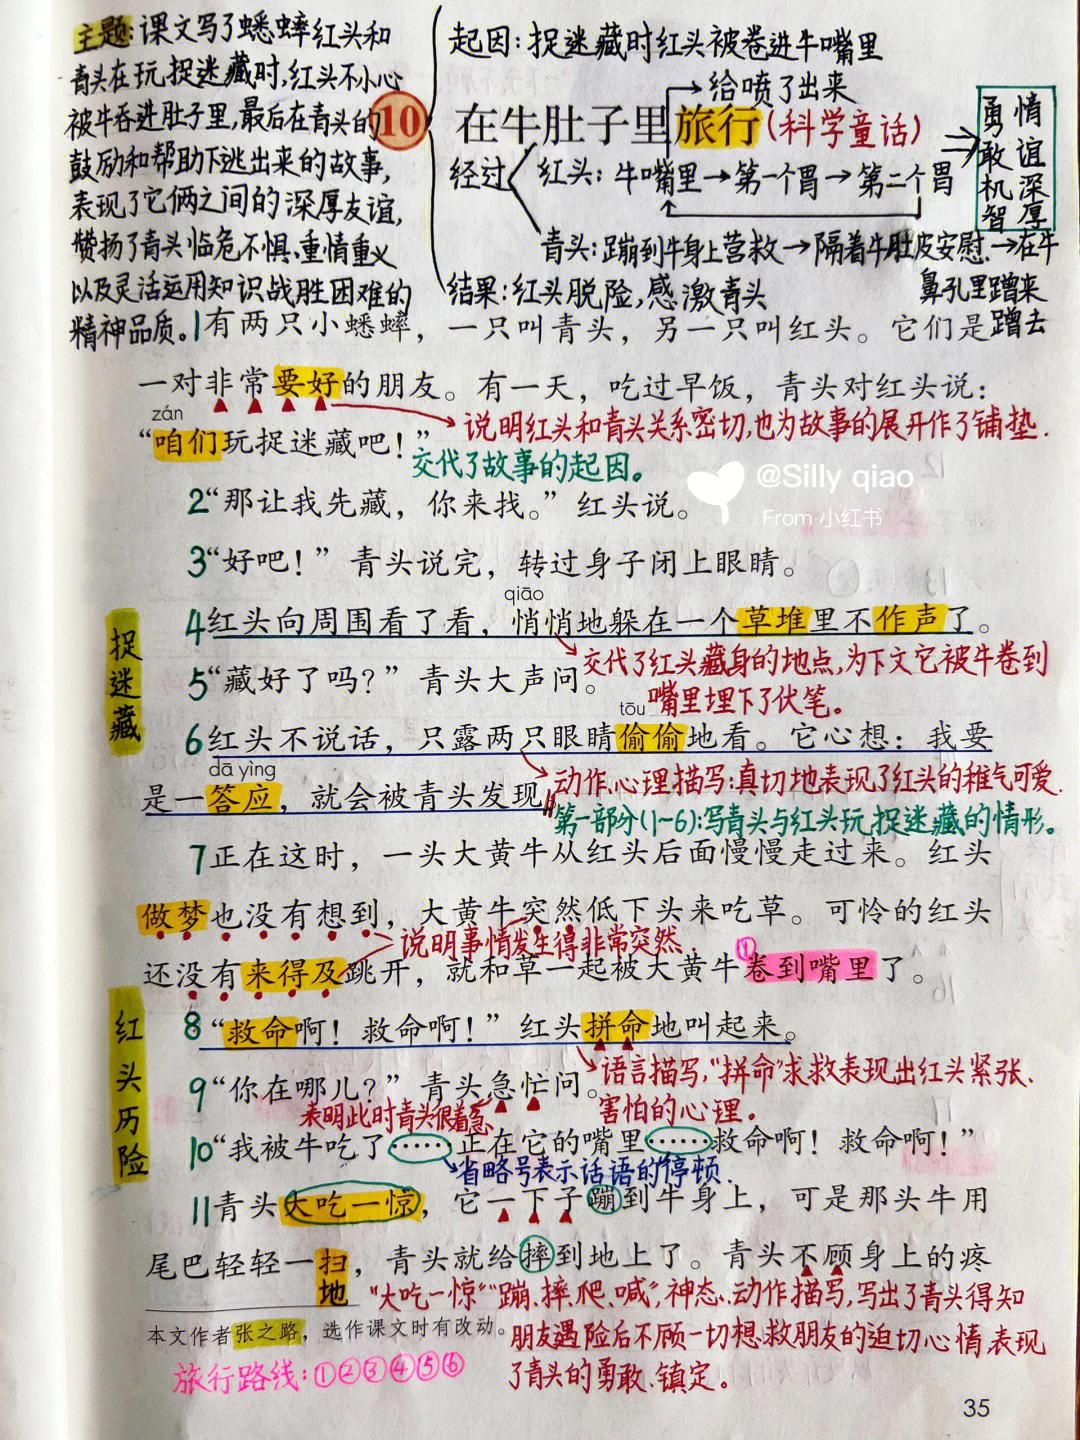 主题:课文写了蟋蟀红头和
青头在玩捉迷藏时,红头不小心
被牛吞进肚子里,最后在青头的
鼓励和帮助下逃出来的故事,
表现了它俩之间的深厚友谊,
赞扬了青头临危不惧、重情重义
以及灵活运用知识战胜困难的
精神品质。
起因:捉迷藏时红头被卷进牛嘴里
给喷了出来
10 在牛肚子里旅行(科学童话)
经过
红头:牛嘴里→第一个胃→第二个胃
青头:蹦到牛身上营救→隔着牛肚皮安慰→在牛
鼻孔里蹭来
蹭去
结果:红头脱险,感激青头
勇敢机智
情谊深厚
1有两只小蟋蟀,一只叫青头,另一只叫红头。它们是
一对非常要好的朋友。有一天,吃过早饭,青头对红头说:
zán
说明红头和青头关系密切,也为故事的展开作了铺垫.
“咱们玩捉迷藏吧!”
交代了故事的起因。
@Silly qiao
From 小红书
2“那让我先藏,你来找。”红头说。
3“好吧!”青头说完,转过身子闭上眼睛。
qiāo
4红头向周围看了看,悄悄地躲在一个草堆里不作声了。
捉迷藏
交代了红头藏身的地点,为下文它被牛卷到
嘴里埋下了伏笔。
5“藏好了吗?”青头大声问。
tōu
6红头不说话,只露两只眼睛偷偷地看。它心想:我要
dā yìng
动作、心理描写:真切地表现了红头的稚气可爱.
是一答应,就会被青头发现‖
第一部分(1~6):写青头与红头玩捉迷藏的情形。
7正在这时,一头大黄牛从红头后面慢慢走过来。红头
做梦也没有想到,大黄牛突然低下头来吃草。可怜的红头
说明事情发生得非常突然.
①
还没有来得及跳开,就和草一起被大黄牛卷到嘴里了。
红头历险
8“救命啊!救命啊!”红头拼命地叫起来。
语言描写,“拼命”求救表现出红头紧张、
害怕的心理。
9“你在哪儿?”青头急忙问。
表明此时青头很着急
10“我被牛吃了……正在它的嘴里……救命啊!救命啊!”
省略号表示话语的停顿.
11青头大吃一惊,它一下子蹦到牛身上,可是那头牛用
尾巴轻轻一扫,青头就给摔到地上了。青头不顾身上的疼
地
“大吃一惊”“蹦、摔、爬、喊”,神态、动作描写,写出了青头得知
朋友遇险后不顾一切想救朋友的迫切心情,表现
了青头的勇敢、镇定。
本文作者张之路,选作课文时有改动。
旅行路线:①②③④⑤⑥
35